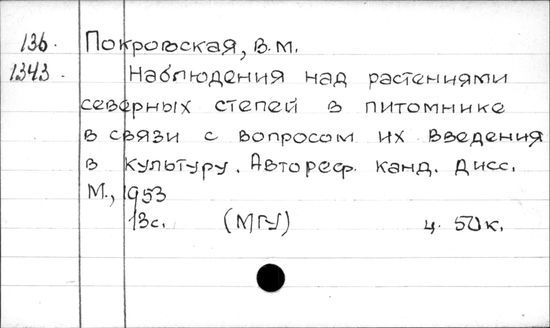 136. Покровская, В.М.
1343. Наблюдения над растениями
северных степей в питомнике
в связи с вопросом их введения
в культуру. Автореф. канд. дисс.
М., 1953
13с. (МГУ) ц. 50к.